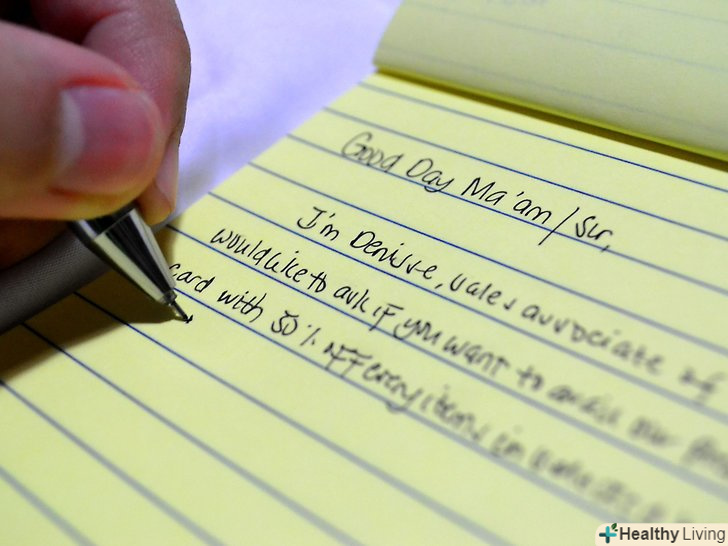 Good Day Ma'am/Sir,
I'm Denisse, sales associate of
would like to ask if you want to our
card with 50% off every item in
Healthy Living